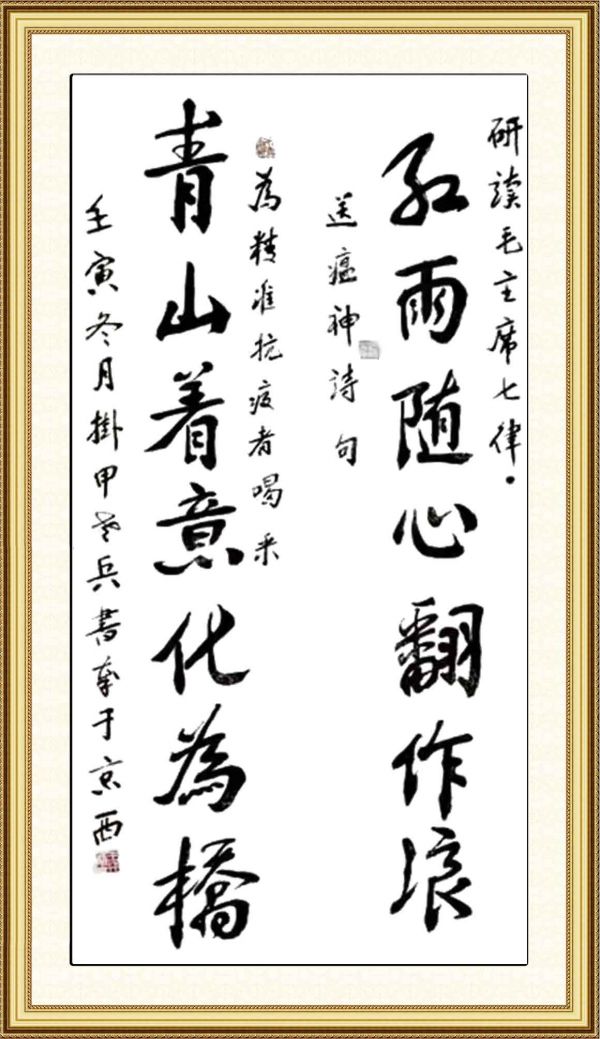 研讀毛主席七律·
紅雨随心翻作浪
送瘟神詩句
為精准抗疫者喝采
青山着意化為橋
壬寅冬月掛甲老兵書奉于京西